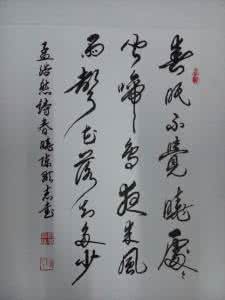 春眠不覺曉處々
聞啼鳥夜来風
雨聲花落知多少
孟浩然詩春曉陳志書